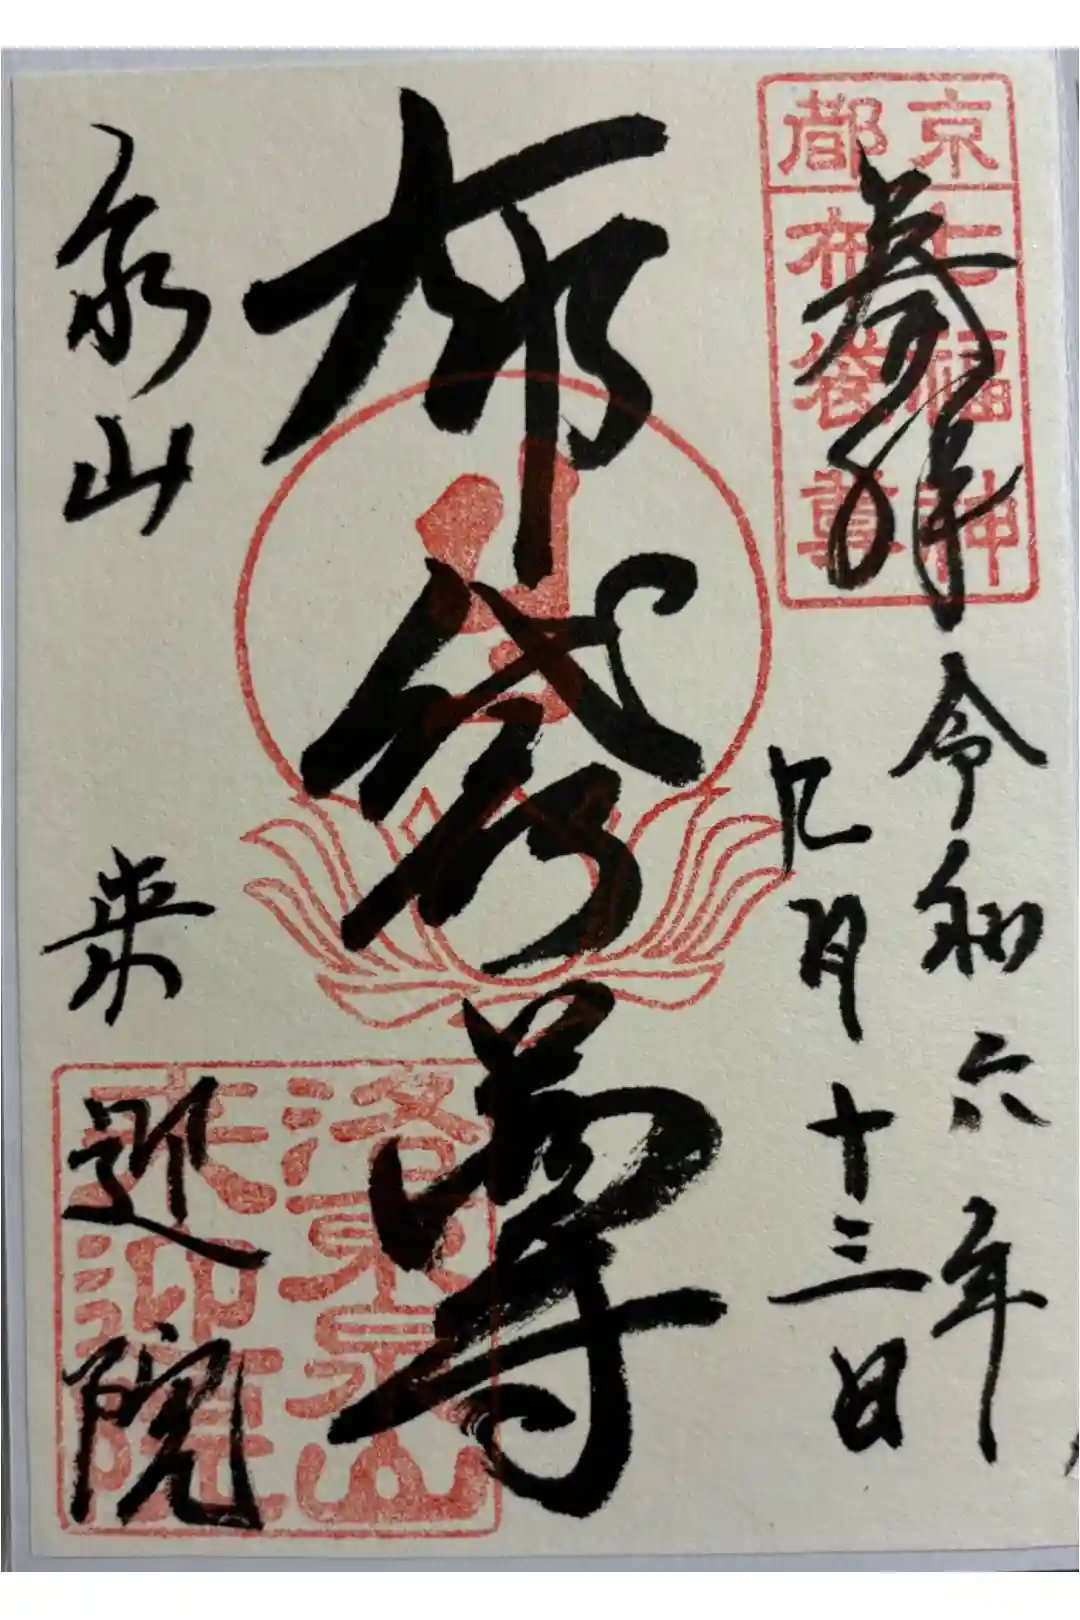 京都
七福神
布袋尊
奉拝
令和六年
九月十三日
布袋尊
泉山
来迎院
洛東泉山
来迎院